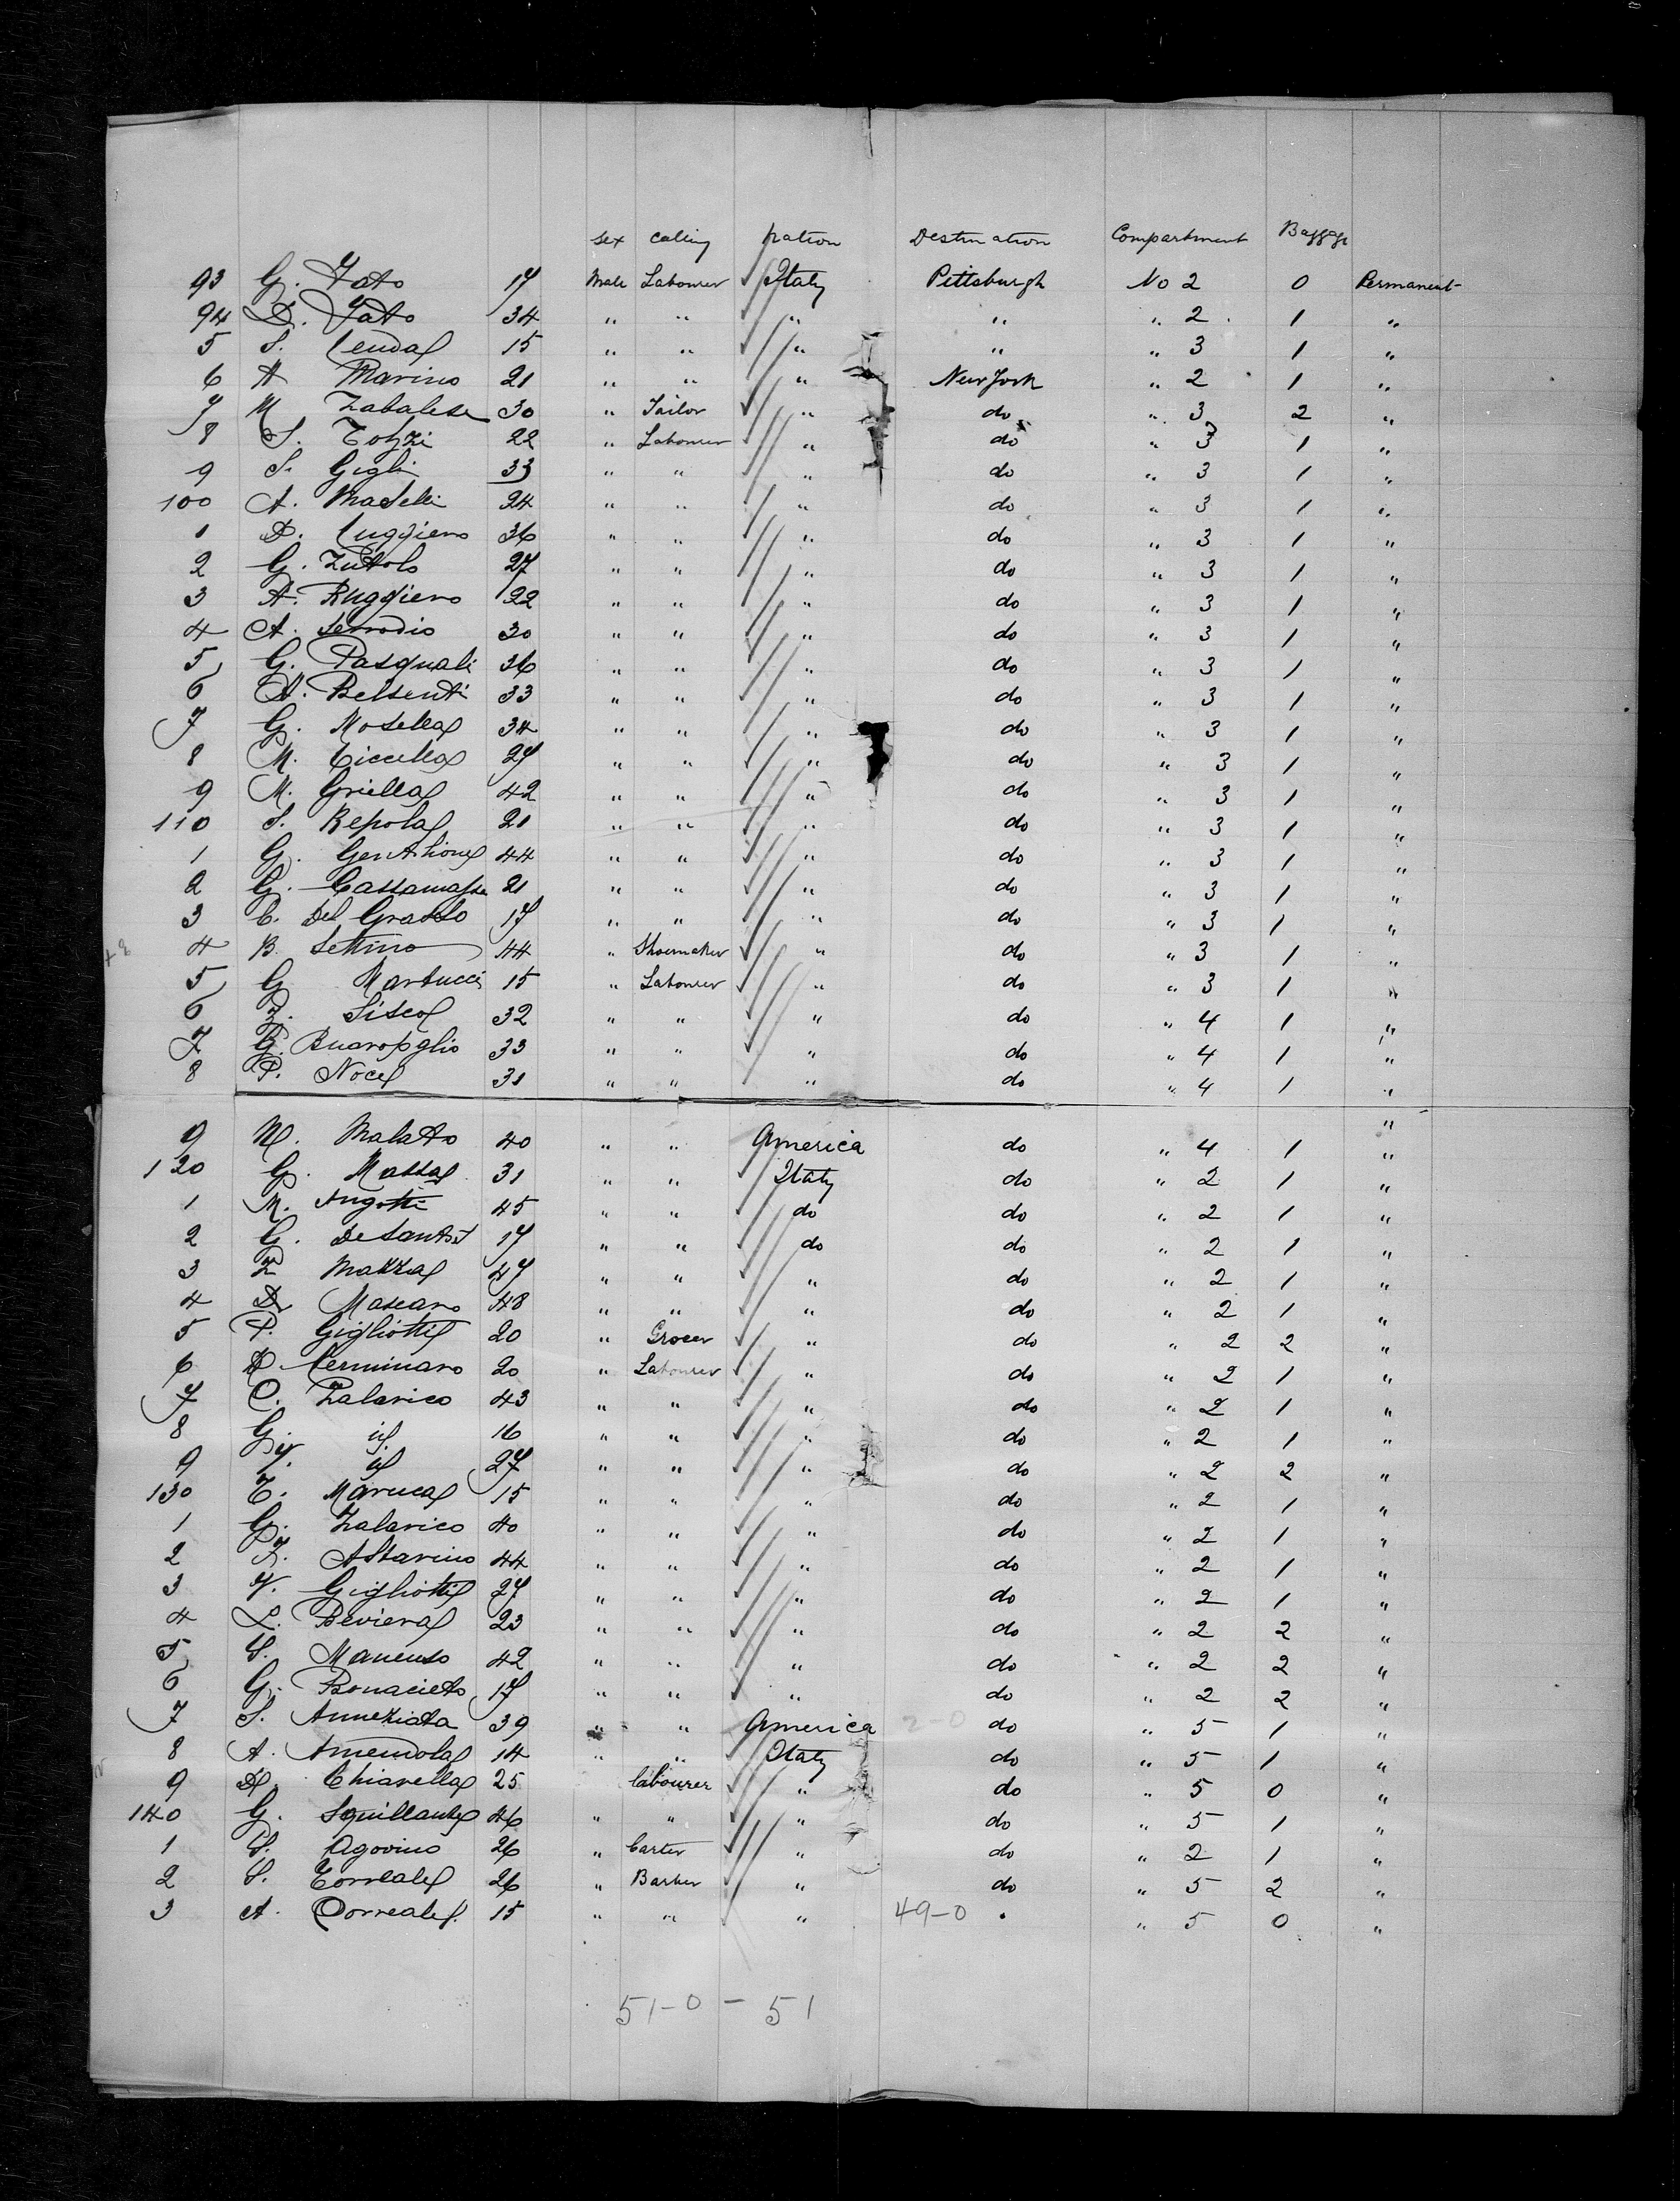 sex calling nation Destination Compartment Baggage
93 G. Fato 17 Male Labourer Italy Pittsburgh No 2 0 Permanent
94 D. Fato 34 " " " " " 2 1 "
5 S. 15 " " " " " 3 1 "
6 A Marino 21 " " " New York " 2 1 "
7 M Zabalese 30 " Tailor " do " 3 2 "
8 S. Tolzzi 22 " Labourer " do " 3 1 "
9 S. Gigli 33 " " " do " 3 1 "
100 A. Maselli 24 " " " do " 3 1 "
1 D. 36 " " " do " 3 1 "
2 G. Zutolo 27 " " " do " 3 1 "
3 A. Ruggiero 22 " " " do " 3 1 "
4 A. Serrodio 30 " " " do " 3 1 "
5 G. Pasquali 36 " " " do " 3 1 "
6 A. Belsenti 33 " " " do " 3 1 "
7 G. Mosella 34 " " " do " 3 1 "
8 M. Ciccella 27 " " " do " 3 1 "
9 M. Griella 42 " " " do " 3 1 "
110 S. Repola 21 " " " do " 3 1 "
1 G. Gentilione 44 " " " do " 3 1 "
2 G. Cassamassa 21 " " " do " 3 1 "
3 C. Del Grasso 17 " " " do " 3 1 "
4 B. Settino 44 " Shoemaker " do " 3 1 "
5 G Martucci 15 " Labourer " do " 3 1 "
6 Z. Sisca 32 " " " do " 4 1 "
7 G. 33 " " " do " 4 1 "
8 P. Noce 31 " " " do " 4 1 "
"
9 M. Malatto 40 " " America do " 4 1 "
120 G. Massa 31 " " Italy do " 2 1 "
1 M. Angotti 45 " " do do " 2 1 "
2 G. DeSantis 17 " " do do " 2 1 "
3 Z Mazza 47 " " " do " 2 1 "
4 D. Mascaro 48 " " " do " 2 1 "
5 P. Gigliotti 20 " Grocer " do " 2 2 "
6 D. Cerminaro 20 " Labourer " do " 2 1 "
7 C. Talarico 43 " " " do " 2 1 "
8 G. id 16 " " " do " 2 1 "
9 V. id 27 " " " do " 2 2 "
130 T. Maruca 15 " " " do " 2 1 "
1 G. Talarico 40 " " " do " 2 1 "
2 F. Astarino 44 " " " do " 2 1 "
3 V. Gigliotti 27 " " " do " 2 1 "
4 L. Beviera 23 " " " do " 2 2 "
5 S. Manenso 42 " " " do " 2 2 "
6 G. Bonacieto 17 " " " do " 2 2 "
7 S. Anneziata 39 " " America 2-0 do " 5 1 "
8 A. Amendola 14 " " Italy do " 5 1 "
9 D. Chiarella 25 labourer " do " 5 0 "
140 G. Squillante 46 " " " do " 5 1 "
1 S. Agovino 26 " Carter " do " 2 1 "
2 S. Correale 26 " Barber " do " 5 2 "
3 A. Correale. 15 " " " 49-0 " 5 0 "
51-0 - 51